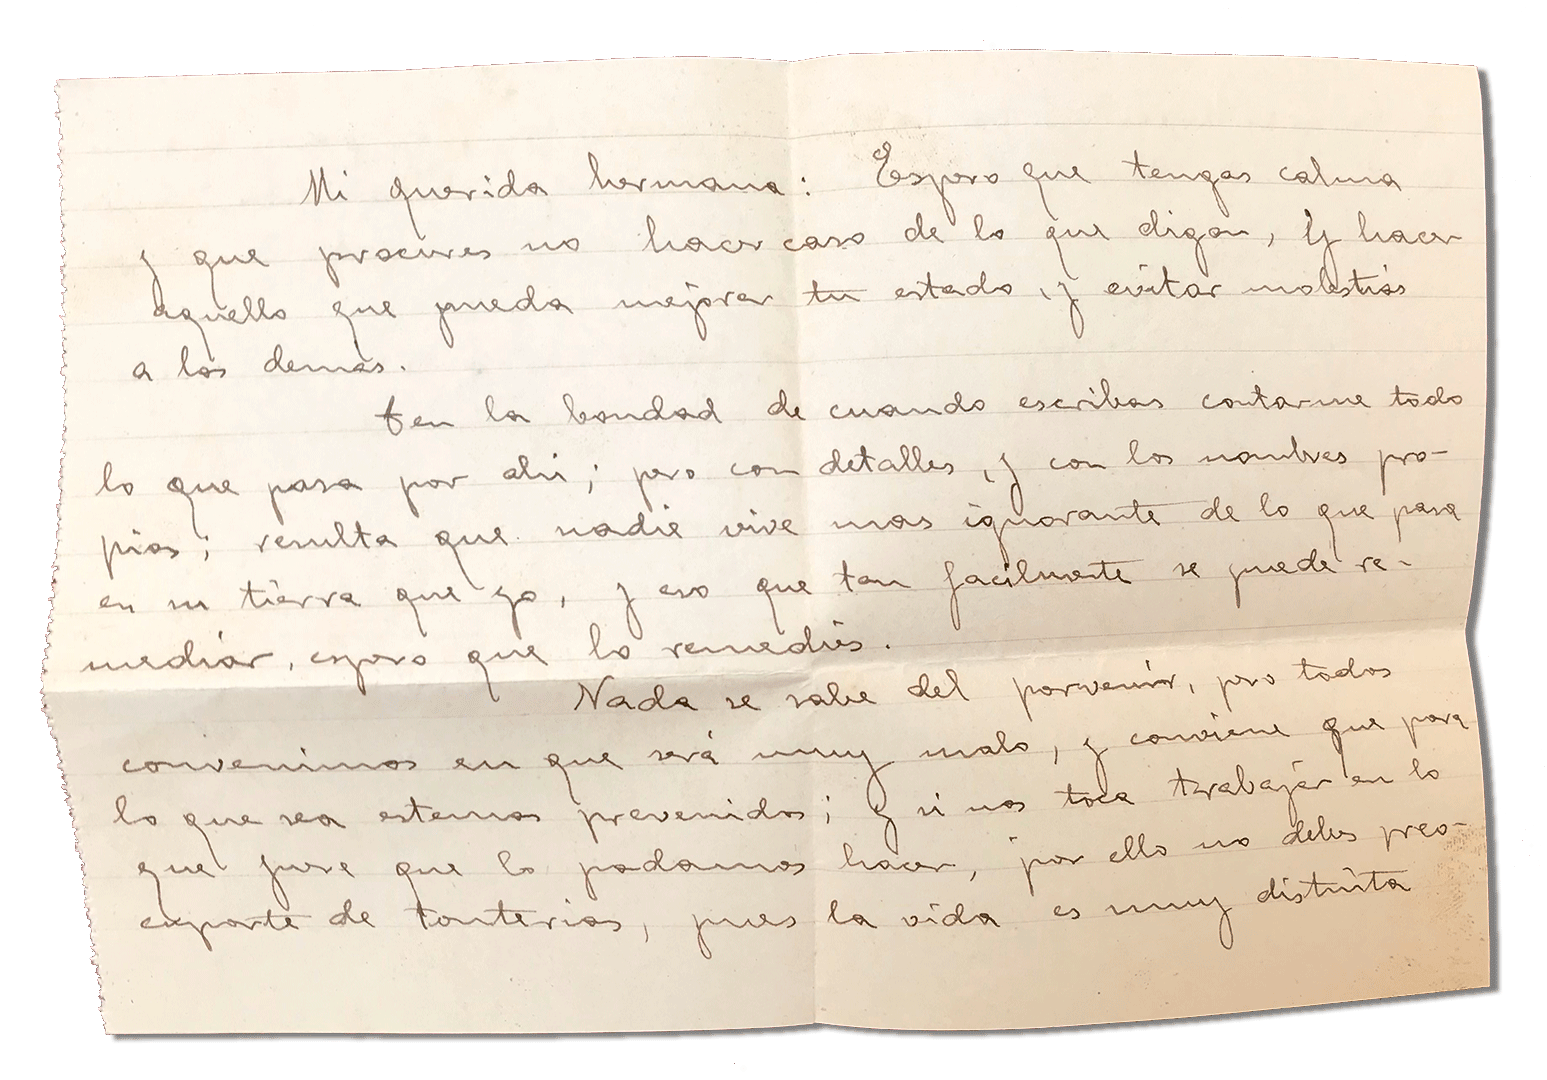 Mi querida hermana: Espero que tengas calma
y que procures no hacer caso de lo que digan, y hacer
aquello que pueda mejorar tu estado, y evitar molestias
a los demas.
ten la bondad de cuando escribas contarme todo
lo que pasa por ahi; pero con detalles, y con los nombres pro-
pios; resulta que nadie vive mas ignorante de lo que pasa
en su tierra que yo, y eso que tan facilmente se puede re-
mediar, espero que lo remedies.
Nada se sabe del porvenir, pero todos
convenimos en que será muy malo, y conviene que para
lo que sea estemos prevenidos; y si nos toca trabajar en lo
que que lo podamos hacer, por ello no debes preo-
cuparte de tonterias, pues la vida es muy distinta